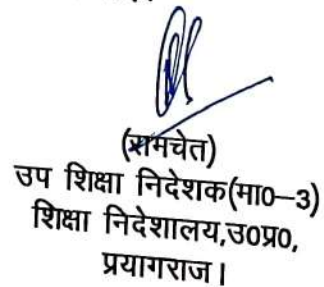 (रामचेत)
उप शिक्षा निदेशक(मा०–3)
शिक्षा निदेशालय,उ०प्र०,
प्रयागराज।